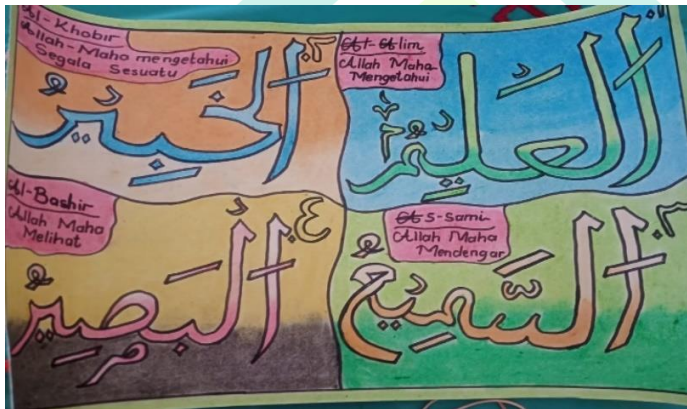 Al-Khobir
Allah-Maha mengetahui
Segala Sesuatu
٢
الْخَبِيْرُ
At-Alim
Allah Maha
Mengetahui
١
الْعَلِيْمُ
Al-Bashir
Allah Maha
Melihat
٤
الْبَصِيْرُ
As-Sami
Allah Maha
Mendengar
٣
السَّمِيْعُ